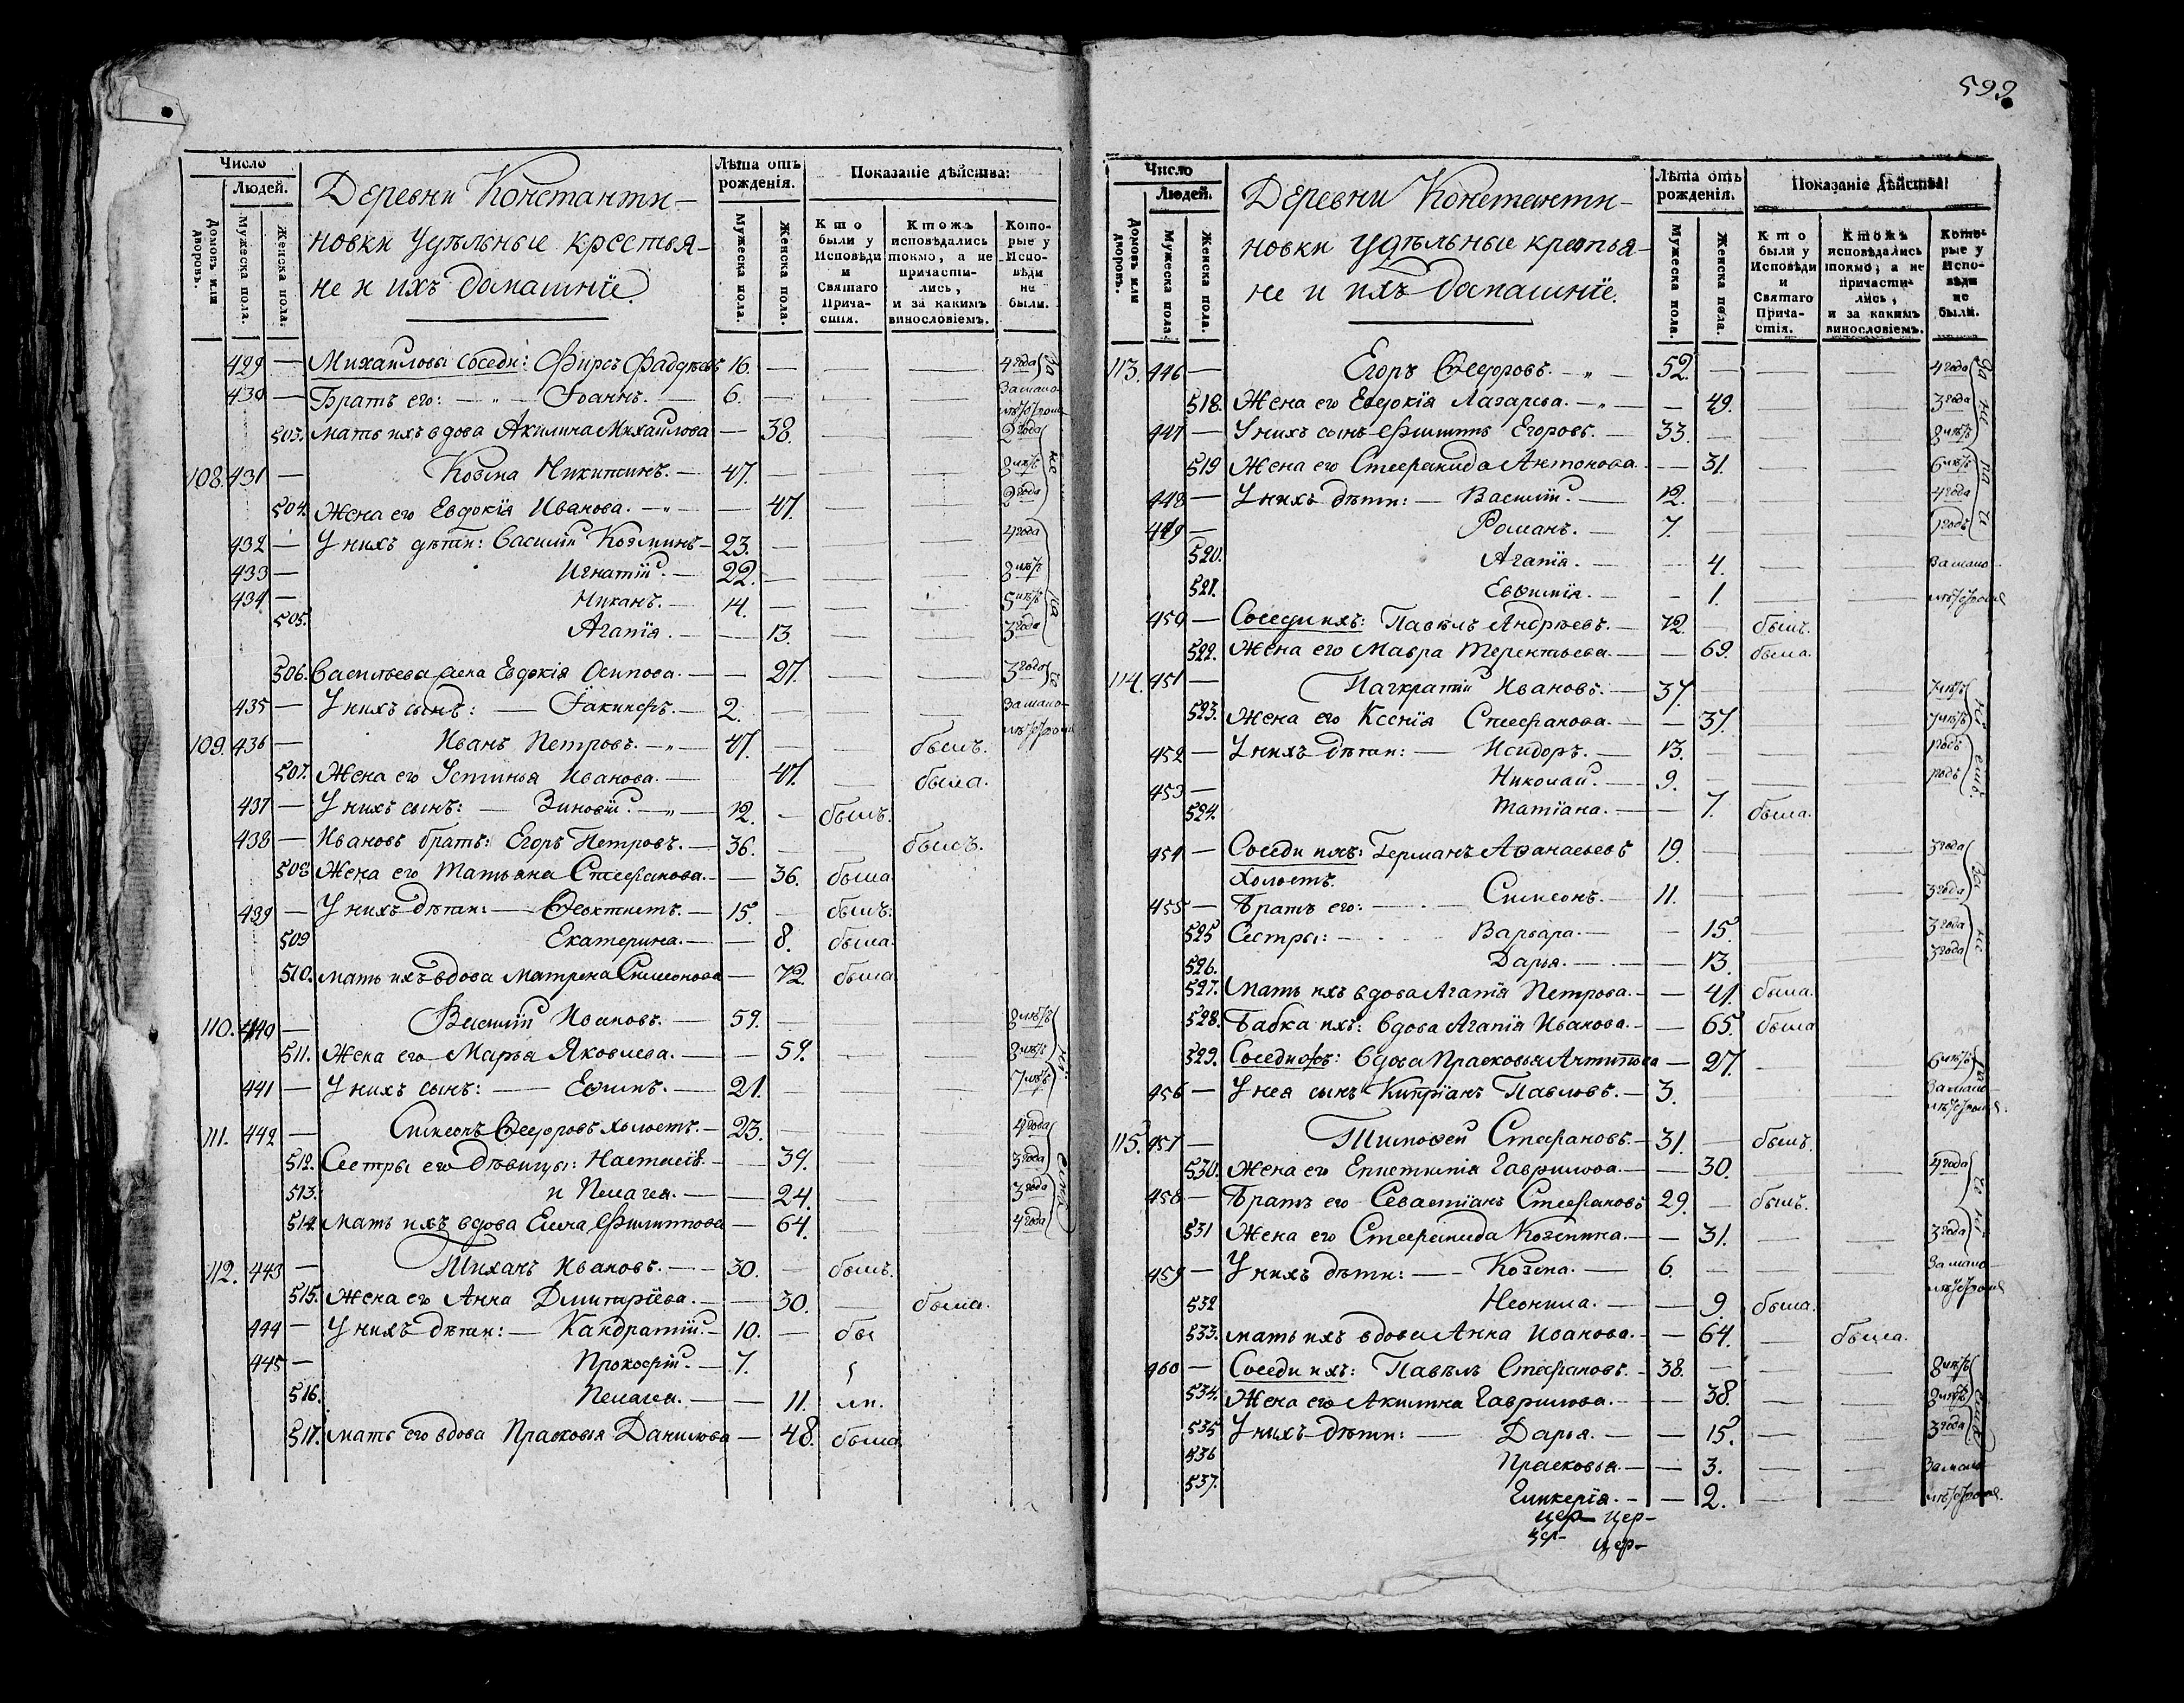 599
Число
Людей.
Домовъ или дворовъ.
Мужеска пола.
Женска пола.
Деревни Константи-
новки Удѣльные крестья-
не и ихъ домашніе.
Лѣта отъ рожденія.
Мужеска пола.
Женска пола.
Показаніе дѣйства:
Кто были у Исповѣди и Святаго Прича- стія.
Ктожъ исповѣдались токмо, а не причасти- лись, и за какимъ винословіемъ.
Кото- рые у Испо- вѣди не были.
429 — Михаиловы соседи: Фирсъ Фаддѣевъ 16. — — — 4 года
430 — Братъ его: — „ — Іоаннъ. — 6. — — — За мало-
503. мать ихъ вдова Акилина Михаилова — 38. — — 2 года
108. 431 — Козма Никитинъ. — 47. — — — 8 лѣтъ
504. Жена его Евдокія Иванова. — „ — — 47. — — 2 года
432 — У нихъ дѣти: Василій Козминъ — 23. — — — 4 года
433 — Игнатій. — 22. — — — 8 лѣтъ
434 — Никанъ. — 14. — — — 5 лѣтъ
505. Агапія. — — 13. — — 3 года
506. Васильева жена Евдокія Осипова. — — 27. — — 3 года
435 — У нихъ сынъ: — Іакинфъ. — 2. — — — За мало-
109. 436 — Иванъ Петровъ. — „ — 47. — — былъ.
507. Жена его Устинья Иванова. — 47. — была.
437 — У нихъ сынъ: — Зиновій. — „ — 12. — былъ.
438 — Ивановъ братъ: Егоръ Петровъ. — 36. — — былъ.
508 Жена его Татьяна Стефанова. — — 36. была
439 — У нихъ дѣти: — Феоктистъ. — 15. — былъ.
509 Екатерина. — — 8. была.
510. мать ихъ вдова Матрена Симеонова — 72. была
110. 440 — Василій Ивановъ. — 59. — — — 8 лѣтъ
511. Жена его Марья Яковлева. — — 59. — — 8 лѣтъ
441 — У нихъ сынъ: — Ефимъ. — 21. — — — 7 лѣтъ
111. 442 — Симеонъ Федоровъ холостъ. — 23. — — — 4 года
512. Сестры его дѣвицы: Настасія. — — 39. — — 3 года
513. и Пелагея. — — 24. — — 3 года
514. мать ихъ вдова Елена Филиппова — 64. — — 4 года
112. 443 — Тиханъ Ивановъ. — 30. — былъ.
515. Жена его Анна Дмитріева. — — 30. — была.
444 — У нихъ дѣти: — Кандратій. — 10. — бы
445 — Прокофій. — 7.
516. Пелагея. — — 11. ли.
517. мать его вдова Прасковья Данилова — 48. была
Число
Людей.
Домовъ или дворовъ.
Мужеска пола
Женска пола.
Деревни Константи-
новки удѣльные крестья-
не и ихъ домашніе.
Лѣта отъ рожденія.
Мужеска пола.
Женска пола.
Показаніе дѣйства:
Кто были у Исповѣди и Святаго Прича- стія.
Ктожъ исповѣдались токмо, а не причасти- лись, и за какимъ винословіемъ.
Кото- рые у Испо- вѣди не были.
113. 446 — Егоръ Федоровъ. — „ — 52. — — — 4 года
518. Жена его Евдокія Лазарева. — „ — — 49. — — 3 года
447 — У нихъ сынъ Филиппъ Егоровъ. — 33. — — — 8 лѣтъ
519 Жена его Стефанида Антонова. — 31. — — 6 лѣтъ
448 — У нихъ дѣти: — Василій. — 12. — — — 4 года
449 — Романъ. — 7. — — — 1 годъ
520. Агапія. — — 4. — — За мало-
521. Евфимія. — — 1. — —
450 — Соседи ихъ: Павелъ Андреевъ. — 72. — былъ.
522. Жена его Мавра Терентьева. — — 69. была.
114. 451 — Панкратій Ивановъ. — 37. — — — 7 лѣтъ
523. Жена его Ксенія Стефанова. — — 37. — — 7 лѣтъ
452 — У нихъ дѣти: — Исидоръ. — 13. — — — годъ
453 — Николай. — 9. — — — годъ
524. Татіана. — — 7. была.
454 — Соседи ихъ: Германъ Афанасьевъ 19. — — — 3 года
холостъ.
455 — Братъ его: — Симеонъ. — 11. — — — 3 года
525 Сестры: — Варвара. — — 15. — — 3 года
526. Дарья. — — 13. — — 3 года
527. Мать ихъ вдова Агапія Петрова. — — 41. была.
528. Бабка ихъ: вдова Агапія Иванова. — — 65. была
529. Соседи ихъ: вдова Прасковья Антипова — 27. — — 6 лѣтъ
456 — У нея сынъ Кипріанъ Павловъ. — 3. — — — За мало-
115. 457 — Тимофей Стефановъ. — 31. — былъ.
530. Жена его Епистимія Гаврилова. — — 30. — — 4 года
458 — Братъ его Севастіанъ Стефановъ 29. — былъ.
531 Жена его Стефанида Козмина. — — 31. — — 3 года
459 — У нихъ дѣти: — Козма. — 6. — — — За мало-
532 Неонила. — — 9. была.
533. мать ихъ вдова Анна Иванова. — — 64. — была.
460 — Соседи ихъ: Павелъ Стефановъ. — 38. — — — 8 лѣтъ
534. Жена его Акилина Гаврилова. — — 38. — — 8 лѣтъ
535 У нихъ дѣти: — Дарья. — — 15. — — 3 года
536 Прасковья. — — 3. — — За мало-
537. Гликерія. — — 2. — —
цер- цер-
цер- цер-